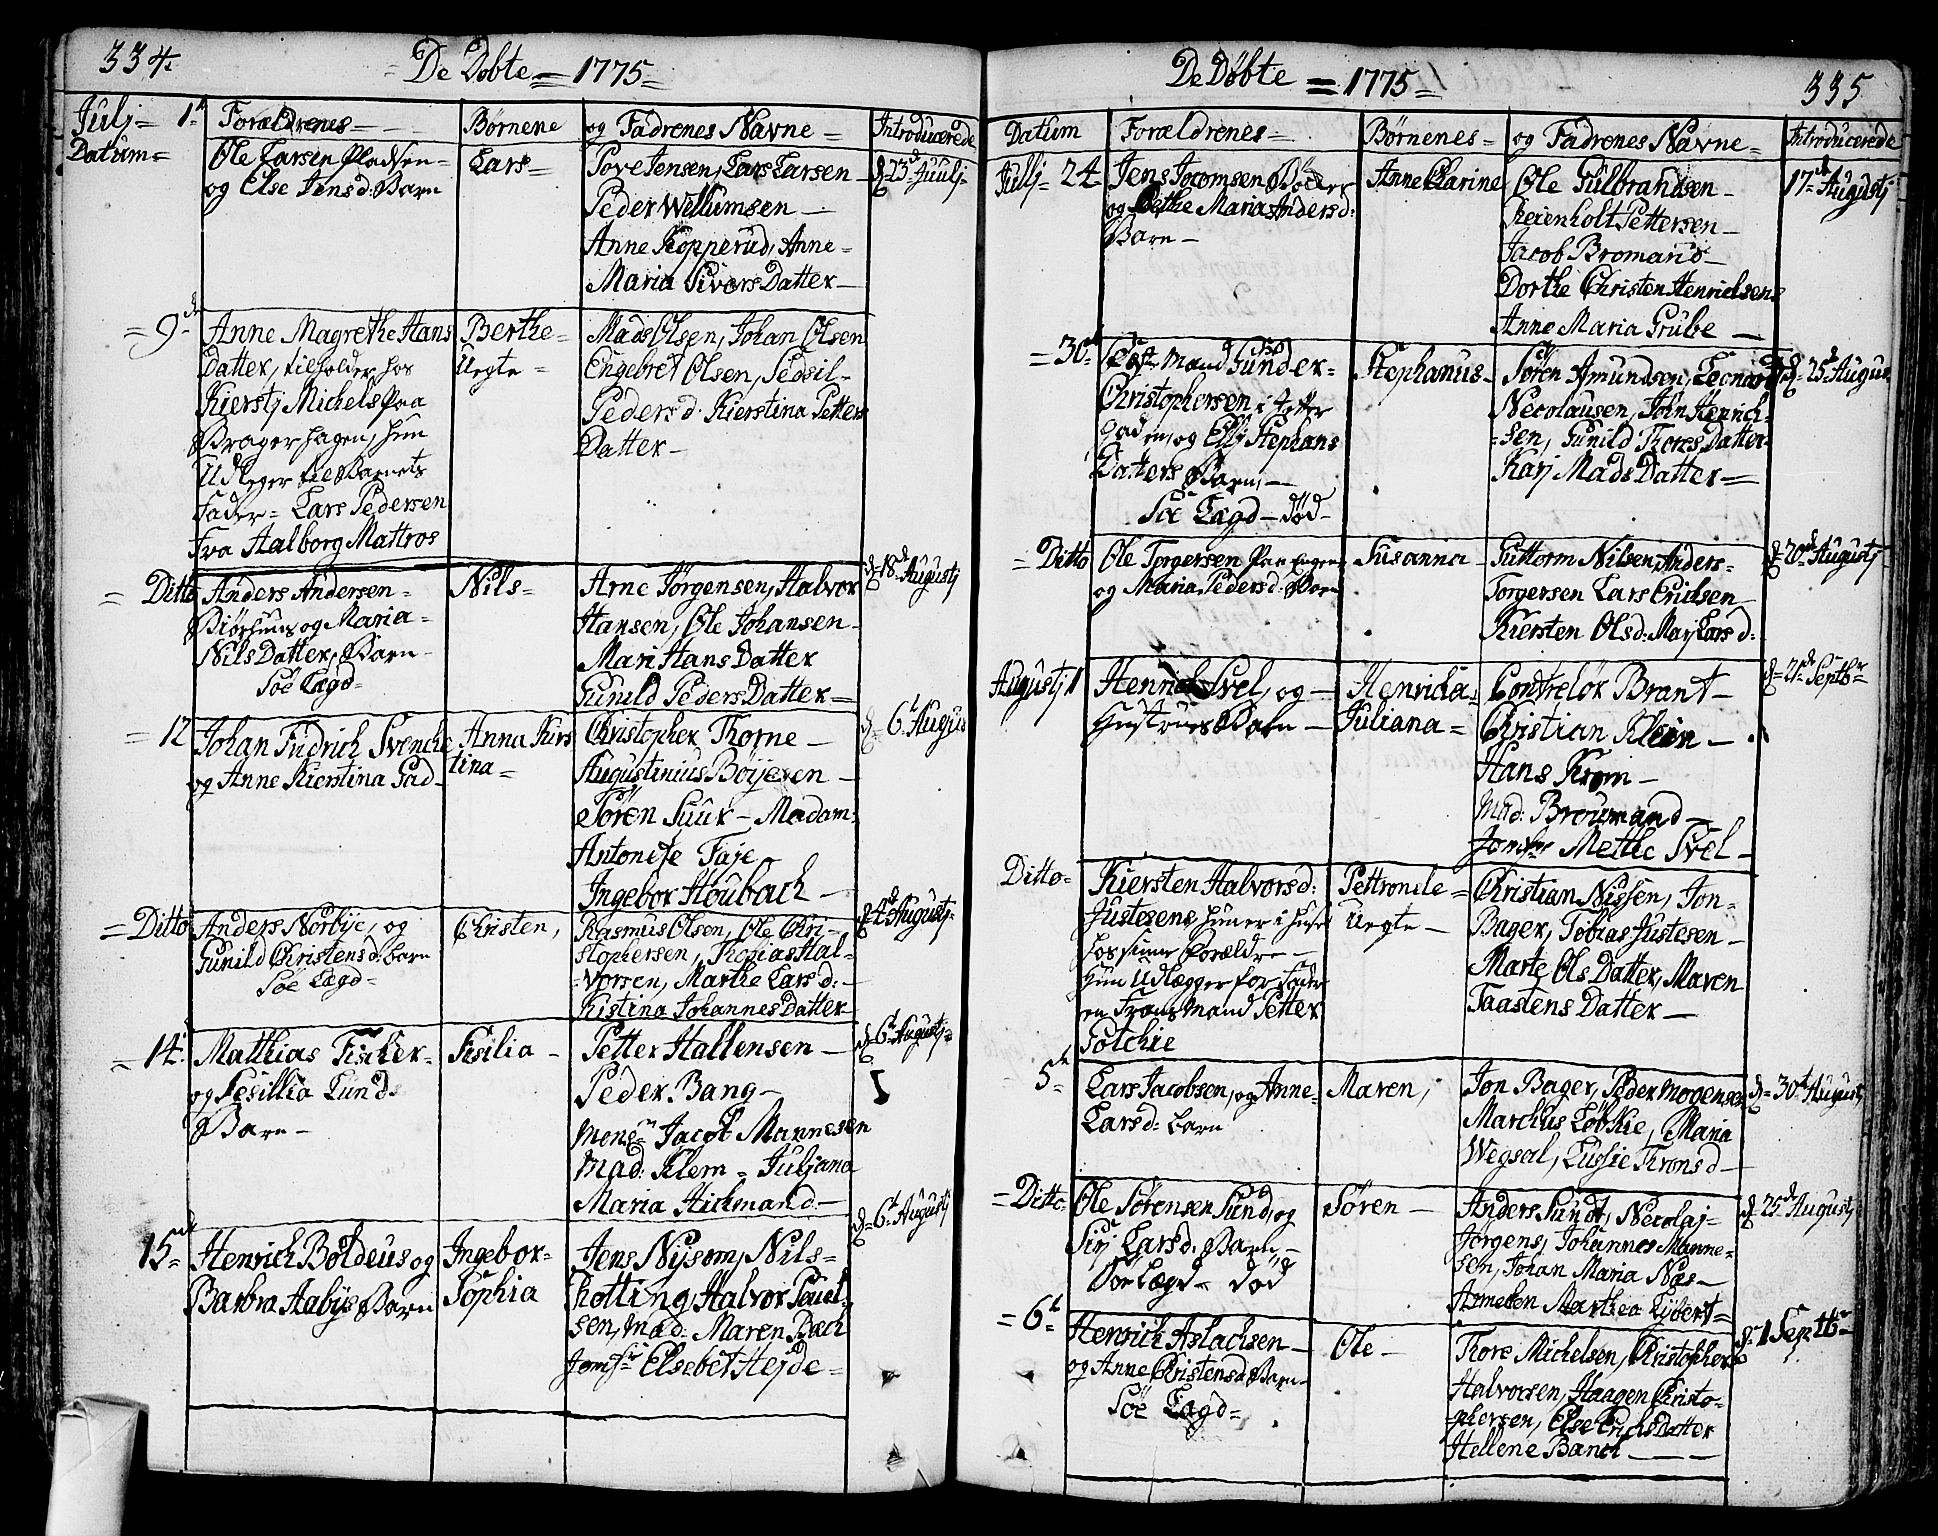 334.
De Döbte = 1775 =
Julj = 1.
Datum =
Forældrenes
Börnene
og Fadrenes Navne =
Introducerede
Ole Larsen Pladsen
og Else Jensd: Barn
Lars =
Tove Jensen, Lars Larsen
Peder Willumsen
Anne Kopperud, Anne
Maria Sivers Datter
d. 23 Juulj
= 9de
Anne Magrethe Hans
Datter, tilholder hos
Kierstj Michels Paa
Bragerhagen, hun
Udleger til Barnets
Fader = Lars Pedersen
Fra Aalborg Mattros
Berthe =
Uegte =
Mads Olsen, Johan Olsen
Engebret Olsen, Sedsil
Pedersd. Kierstina Petters
Datter
= Ditto
Anders Andersen
og Maria
Nils Datter, Barn
Söe Lægd =
Nils =
Arne Jörgensen, Halvor
Hansen, Ole Johansen
Mari Hans Datter
Gunild Peders Datter =
d. 18 Augustj
= 12
Johan Fridrich Svencke
og Anne Kierstina Gad
Anna Kirs
tina =
Christopher Thorne
Augustinius Böijesen
Sören Suur - Madam:
Antonise Faje
Ingebor Houbach
d. 6t Augus
= Ditto
Anders Norbÿe, og
Gunild Christensd. barn
Söe Lægd =
Christen,
Rasmus Olsen, Ole Chri-
stophersen, Thomas Hal
= vorsen, Marthe Lars d:
Kistina Johannes Datter
Augustj
= 14.
Mathias Fischer
og Sesillia Lund
Barn -
Sisilia -
Petter Hallensen
Peder Bang -
Mons: Jacob Mannesen
Mad: Klem = Juljana
Maria Hichmand
d. 6t Augustj
15de
Henrich Boldeus og
Barbra Aabÿs Barn
Ingebor
Sophia
Jens Nÿsom, Nils =
Rotting, Halvor Poül
sen, Mad: Maren Bech
Jomfr Elsebet Hejde =
d. 6t Augustj
335
De Döbte = 1775 =
Datum
Forældrenes =
Börnenes =
og Fadrenes Navne =
Introducerede
Julj = 24
Jens Jocomsen Böder
og Dethe Maria Andersd:
Barn -
Anne Clarine
Ole Gulbrandsen
Reienholt Pettersen
Jacob Bromand
Dorthe Christen Henrichsens
Anne Maria Grube
17de Augustj
= 30te
mand Gunder =
Christophersen i
gaden, og Elj Stephans
Datters Barn, -
Söe Lægd - död
Stephanus
Sören Amundsen, Leonard
Necolausen, John Henrich
= sen, Gunild Thores Datter
Karj Mads Datter =
d. 25 Augus
= Ditto
Ole Torgersen Paa Engen
og Maria Pedersd: Barn
Susanna
Guttorm Nilsen, Anders
Torgersen Lars Erichsen
Kiersten Olsd: Marj Lars d:
d. 20 Augustj
Augustj 1
Henrich Svel, og
Hustrues Barn
Henricha
Juliana =
Contrelör Brant
Christian Klein
Hans Krom -
Mad: Broumand
Jomfr Mette Svel
d. 21 Septbr
Ditto =
Kiersten Halvorsd:
Justesens hun er i huse
hos sinne Forældre -
Hun Udlægger for Fader
en Frans mand Petter
Solchie
Pettronele =
Uegte -
Christian Nissen, Jon
Bager, Tobias Justesen
Marte Ols Datter, Maren
Taastens Datter
5te
Lars Jacobsen, og Anne
Larsd: barn
Maren,
Jon Bager, Peder Mogensen
Marchus Löbkie, Maria
Wegsal, Lussie Thronsd
d. 30te Augustj
= Ditto
Ole Sörensen Sund, og
Sirj Larsd. Barn, -
Söe Lægd - död
Sören -
Anders Sundt, Necolaj
Jörgens, Johannes Manne-
sen, Johan Maria Nas -
Marthea Lybert =
d. 25de Augustj
= 6t
Henrich Aslachsen
og Anne Christensd. Barn
Söe Lægd =
Ole -
Thore Michelsen, Christopher
Halvorsen, Haagen Christo-
phersen, Else Erichs Datter
Hellene Banch
d. 1 Septbr